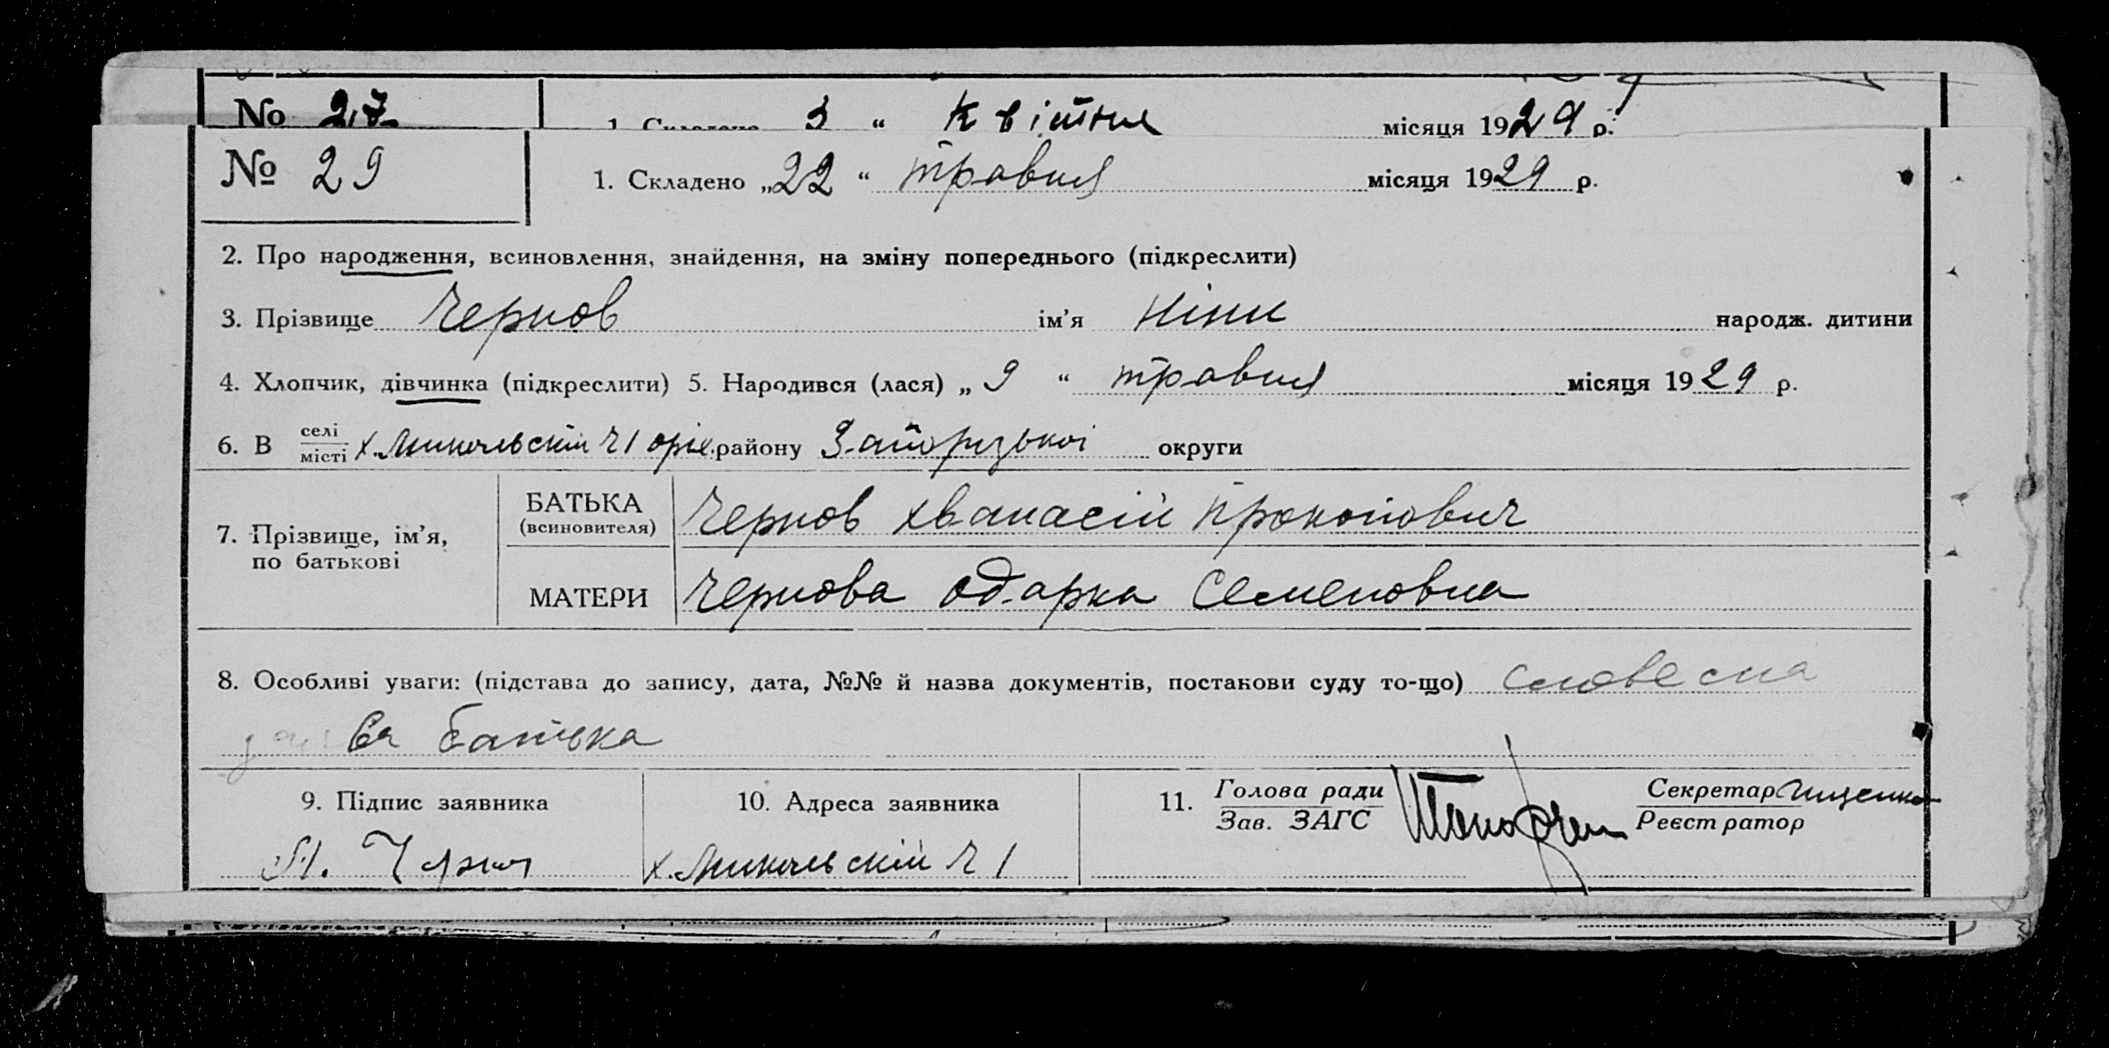 № 27 1. Складено 3 “ Квітня місяця 1929 р.
№ 29 1. Складено „22 “ травня місяця 1929 р.
2. Про народження, всиновлення, знайдення, на зміну попереднього (підкреслити)
3. Прізвище Чернов ім’я Ніни народж. дитини
4. Хлопчик, дівчинка (підкреслити) 5. Народився (лася) „ 9 “ травня місяця 1929 р.
6. В селі місті х. Микольскім Ч 1 оріх. району Запорізької округи
7. Прізвище, ім’я, по батькові
БАТЬКА (всиновителя) Чернов Хванасій Прокопович
МАТЕРИ Чернова Одарка Семеновна
8. Особливі уваги: (підстава до запису, дата, №№ й назва документів, постанови суду то-що) словесна
заява батька
9. Підпис заявника 10. Адреса заявника 11. Голова ради Зав. ЗАГС Секретар Реєстратор
х. Микольскій Ч 1